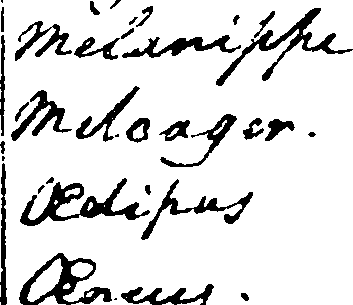 Melanippe
Meleager.
Œdipus
Œneus.